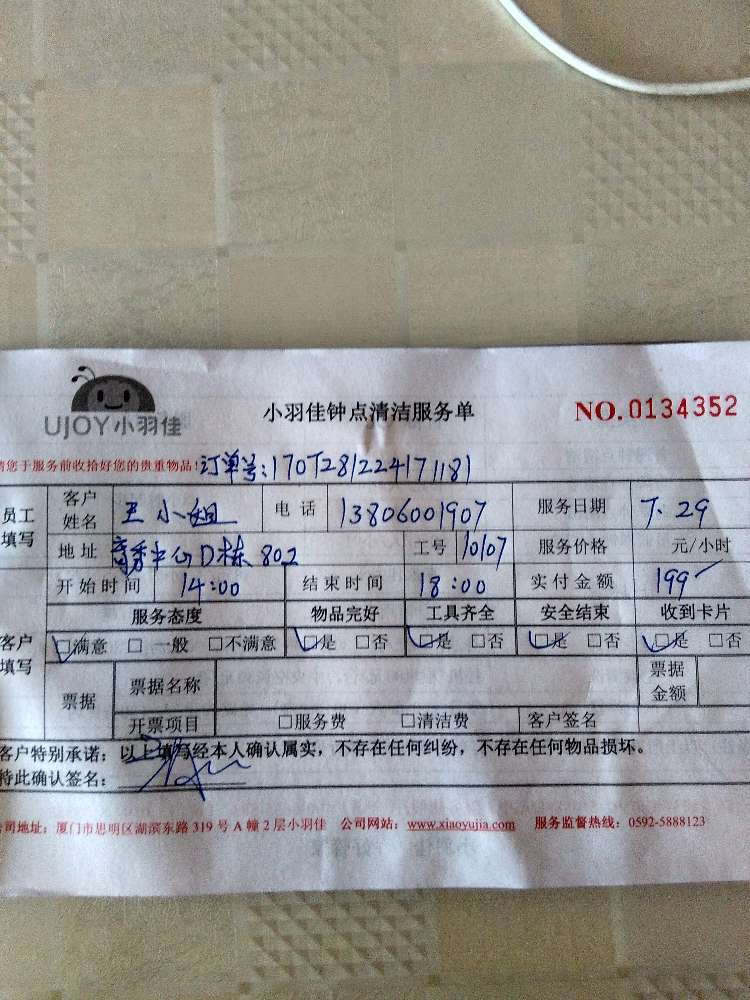 UJOY小羽佳
小羽佳钟点清洁服务单
NO.0134352
请您于服务前收拾好您的贵重物品!订单号:
员工填写
客户姓名 王小姐 电话 13806001907 服务日期 7.29
地址 中心D栋802 工号 10107 服务价格 元/小时
开始时间 14:00 结束时间 18:00 实付金额 199
服务态度 物品完好 工具齐全 安全结束 收到卡片
客户填写
□满意 □一般 □不满意 □是 □否 □是 □否 □是 □否 □是 □否
票据 票据名称 票据金额
开票项目 □服务费 □清洁费 客户签名
客户特别承诺：以上填写经本人确认属实，不存在任何纠纷，不存在任何物品损坏。
特此确认签名：
公司地址：厦门市思明区湖滨东路 319 号 A 幢 2 层小羽佳 公司网站：www.xiaoyujia.com 服务监督热线：0592-5888123